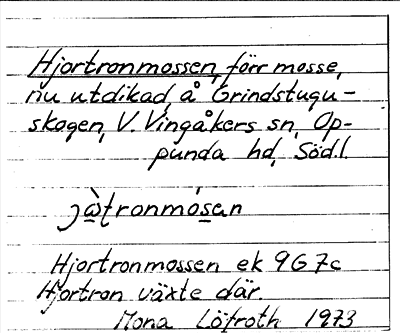 Hjortronmossen, förr mosse,
nu utdikad, å Grindstugu-
skogen, V. Vingåkers sn, Op-
punda hd, Södl.
jὼţronmósan
Hjortronmossen ek 9G7c
Hjortron växte där.
Mona Löfroth 1973